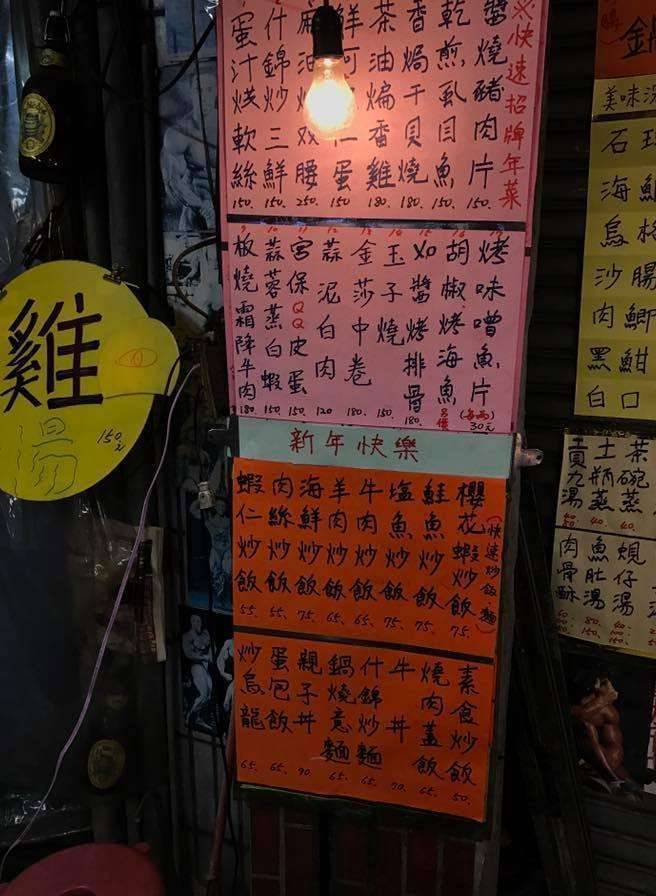 快速招牌年菜
醬燒豬肉片 150.
乾煎虱目魚 150.
香焗干貝燒 180.
茶油煸香雞 180.
鮮 仁蛋 150.
麻油 双腰 250.
什錦炒三鮮 150.
蛋汁烘軟絲 150.
烤味噌魚片 (每兩) 30元
胡椒烤海魚
醬烤排骨 180.
玉子燒 150.
金莎中卷 180.
蒜泥白肉 120
宮保QQ皮蛋 150.
蒜蓉蒸白蝦 150.
板燒霜降牛肉 180.
新年快樂
(快速炒飯、麵)
櫻花蝦炒飯 75.
鮭魚炒飯 75.
塩魚炒飯 75.
牛肉炒飯 65.
羊肉炒飯 65.
海鮮炒飯 75.
肉絲炒飯 55.
蝦仁炒飯 55.
素食炒飯 50.
燒肉蓋飯 65.
牛丼 70.
什錦炒麵 65.
鍋燒意麵 65.
親子丼 90.
蛋包飯 65.
炒烏龍 65.
雞湯 150元
鍋
美味湯
石
海
烏格
沙腸
肉鯽
黑魽
白口
茶碗蒸
土瓶蒸 40.
貢丸湯 40
蜆仔湯
魚肚湯
肉骨酥